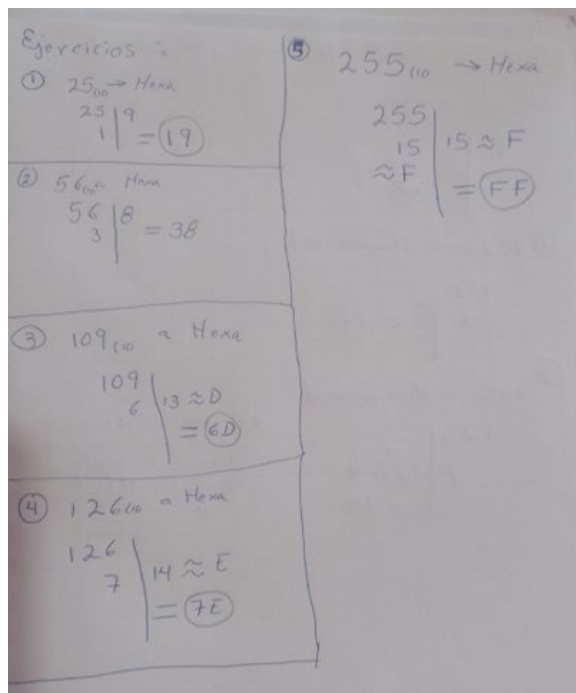 Ejercicios :
① 25(10 → Hexa
25 | 9
1 | = 19
② 56(10 a Hexa
56 | 8
3 | = 38
③ 109(10 a Hexa
109
6 | 13 ≈ D
= 6D
④ 126(10 a Hexa
126
7 | 14 ≈ E
= 7E
⑤ 255(10 → Hexa
255
15 | 15 ≈ F
≈ F | = FF